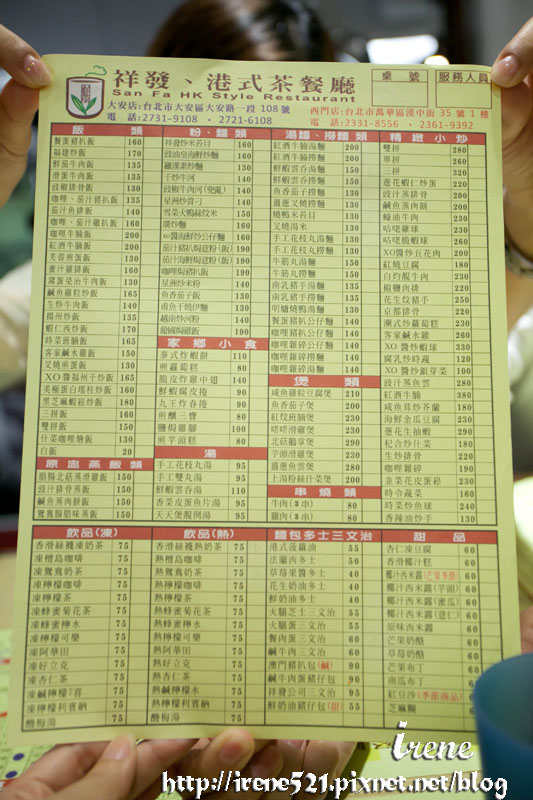 祥發、港式茶餐廳
San Fa HK Style Restaurant
桌號
服務人員
大安店:台北市大安區大安路一段108號
電話:2731-9108・2721-6108
西門店:台北市萬華區漢中街35號1樓
電話:2331-8556・2361-9392
飯類
餐蛋豬扒飯 160
福建炒飯 170
鮮茄牛肉飯 135
滑蛋牛肉飯 135
豉椒排骨飯 130
咖哩、茄汁豬扒飯 135
茄汁魚排飯 140
咖哩、茄汁雞扒飯 160
咖哩牛腩飯 200
紅酒牛腩飯 200
芙蓉煎蛋飯 130
蜜汁雞排飯 160
窩蛋免治牛肉飯 130
鹹魚雞粒炒飯 165
生炒牛肉飯 140
揚州炒飯 135
蝦仁西炒飯 170
時菜班腩飯 165
客家鹹水雞飯 150
叉燒煎蛋飯 130
XO醬福州干炒飯 165
美極蛋白瑤柱炒飯 160
黑芝麻蝦崧炒飯 180
三拼飯 160
雙拼飯 150
什菜咖哩燴飯 130
白飯 20
原盅蒸飯類
臘腸北菇蒸滑雞飯 150
豉汁排骨蒸飯 150
鹹魚蒸肉餅飯 150
鴛鴦腸臘味蒸飯 150
粉、麵類
祥發炒米苔目 160
豉油皇海鮮炒麵 160
羅漢齋炒麵 130
干炒牛河 140
豉椒牛肉河(兜亂) 140
星洲炒貴刁 140
雪菜火鴨絲炆米 150
廣炒麵 160
xo醬海鮮炒公仔麵 160
茄汁豬扒焗意粉(飯) 190
茄汁海鮮焗意粉(飯) 190
咖哩焗豬扒飯 190
星洲炒米粉 140
魚香茄子飯 130
甫魚干燒伊麵 130
越南炒河粉 140
葡國焗雞飯 190
家鄉小食
泰式炸蝦餅 110
煎蘿蔔糕 80
脆皮炸雞中翅 140
鮮蝦腐皮捲 90
九王炸春捲 90
煎釀三寶 80
鹽焗雞腳 100
煎芋頭糕 80
湯
手工花枝丸湯 95
手工雙丸湯 95
鮮蝦雲吞湯 110
香菜皮蛋魚片湯 95
天天煲靚例湯 95
湯麵、撈麵類
紅酒牛腩湯麵 200
紅酒牛腩撈麵 200
鮮蝦雲吞湯麵 150
鮮蝦雲吞撈麵 150
魚香茄子撈麵 130
薑蔥叉燒撈麵 130
燒鴨米苔目 150
叉燒湯米 130
手工花枝丸湯麵 130
手工花枝丸撈麵 130
牛筋丸湯麵 150
牛筋丸撈麵 150
南乳豬手湯麵 135
南乳豬手撈麵 135
明爐燒鴨湯麵 150
餐蛋豬扒公仔麵 140
咖哩豬扒公仔麵 140
咖哩雞碎公仔麵 140
咖哩雞碎撈麵 140
咖哩雞碎湯麵 140
煲類
鹹魚雞粒豆腐煲 210
魚香茄子煲 200
紅炆班腩煲 230
啫啫滑雞煲 230
北菇鵝掌煲 290
芋頭滑雞煲 230
薑蔥魚雲煲 280
上湯粉絲什菜煲 200
串燒類
牛肉(2串) 80
雞肉(2串) 80
精緻小炒
雙拼 280
單拼 260
三拼 320
蔥花蝦仁炒蛋 220
豉汁蒸排骨 220
鹹魚蒸肉餅 200
蠔油牛肉 230
咕咾雞球 230
咕咾蝦球 260
XO醬炒五花肉 200
紅燒豆腐 180
白灼靚牛肉 230
椒鹽肉排 220
花生炆豬手 250
京都排骨 220
潮式炒蘿蔔糕 230
客家鹹水雞 260
XO醬炒蝦球 330
腐乳炒時蔬 120
XO醬炒銀芽菜 100
豉汁蒸魚雲 280
紅酒牛腩 380
鹹魚茸炒芥蘭 180
海鮮金瓜豆腐 230
蔥花生抽蝦 290
杞合炒什菜 180
生炒排骨 220
咖哩雞碎 190
韭菜花皮蛋崧 230
時令蔬菜 160
時菜炒魚球 240
香辣油炒手 130
飲品(凍)
香滑絲襪凍奶茶 75
凍檀島咖啡 75
凍鴛鴦奶茶 75
凍檸檬咖啡 75
凍檸檬茶 75
凍蜂蜜菊花茶 75
凍蜂蜜檸水 75
凍檸檬可樂 75
凍阿華田 75
凍好立克 75
凍杏仁茶 75
凍鹹檸檬7喜 75
凍檸檬利賓納 75
酸梅湯 75
飲品(熱)
香滑絲襪熱奶茶 75
熱檀島咖啡 75
熱鴛鴦奶茶 75
熱檸檬咖啡 75
熱檸檬茶 75
熱蜂蜜菊花茶 75
熱蜂蜜檸水 75
熱檸檬可樂 75
熱阿華田 75
熱好立克 75
熱杏仁茶 75
熱鹹檸檬水 75
熱檸檬利賓納 75
麵包多士三文治
港式菠蘿油 55
法蘭西多士 50
草莓果醬多士 40
花生奶油多士 40
鮮奶油多士 40
火腿芝士三文治 55
火腿蛋三文治 60
餐肉蛋三文治 60
鹹牛肉三文治 60
澳門豬扒包(鹹) 90
鹹牛肉蛋豬仔包 90
祥發公司三文治 95
鮮奶油豬仔包(甜) 55
甜品
杏仁凍豆腐 60
香滑椰汁糕 60
椰汁西米露(芒果季節) 60
椰汁西米露(芋頭) 60
椰汁西米露(蜜瓜) 60
椰汁西米露(薏仁) 60
原味西米露 60
芒果奶酪 60
草莓奶酪 60
芒果布丁 60
南瓜布丁 60
紅豆沙(季節商品) 60
芝麻糊 60
irene
http://irene521.pixnet.net/blog